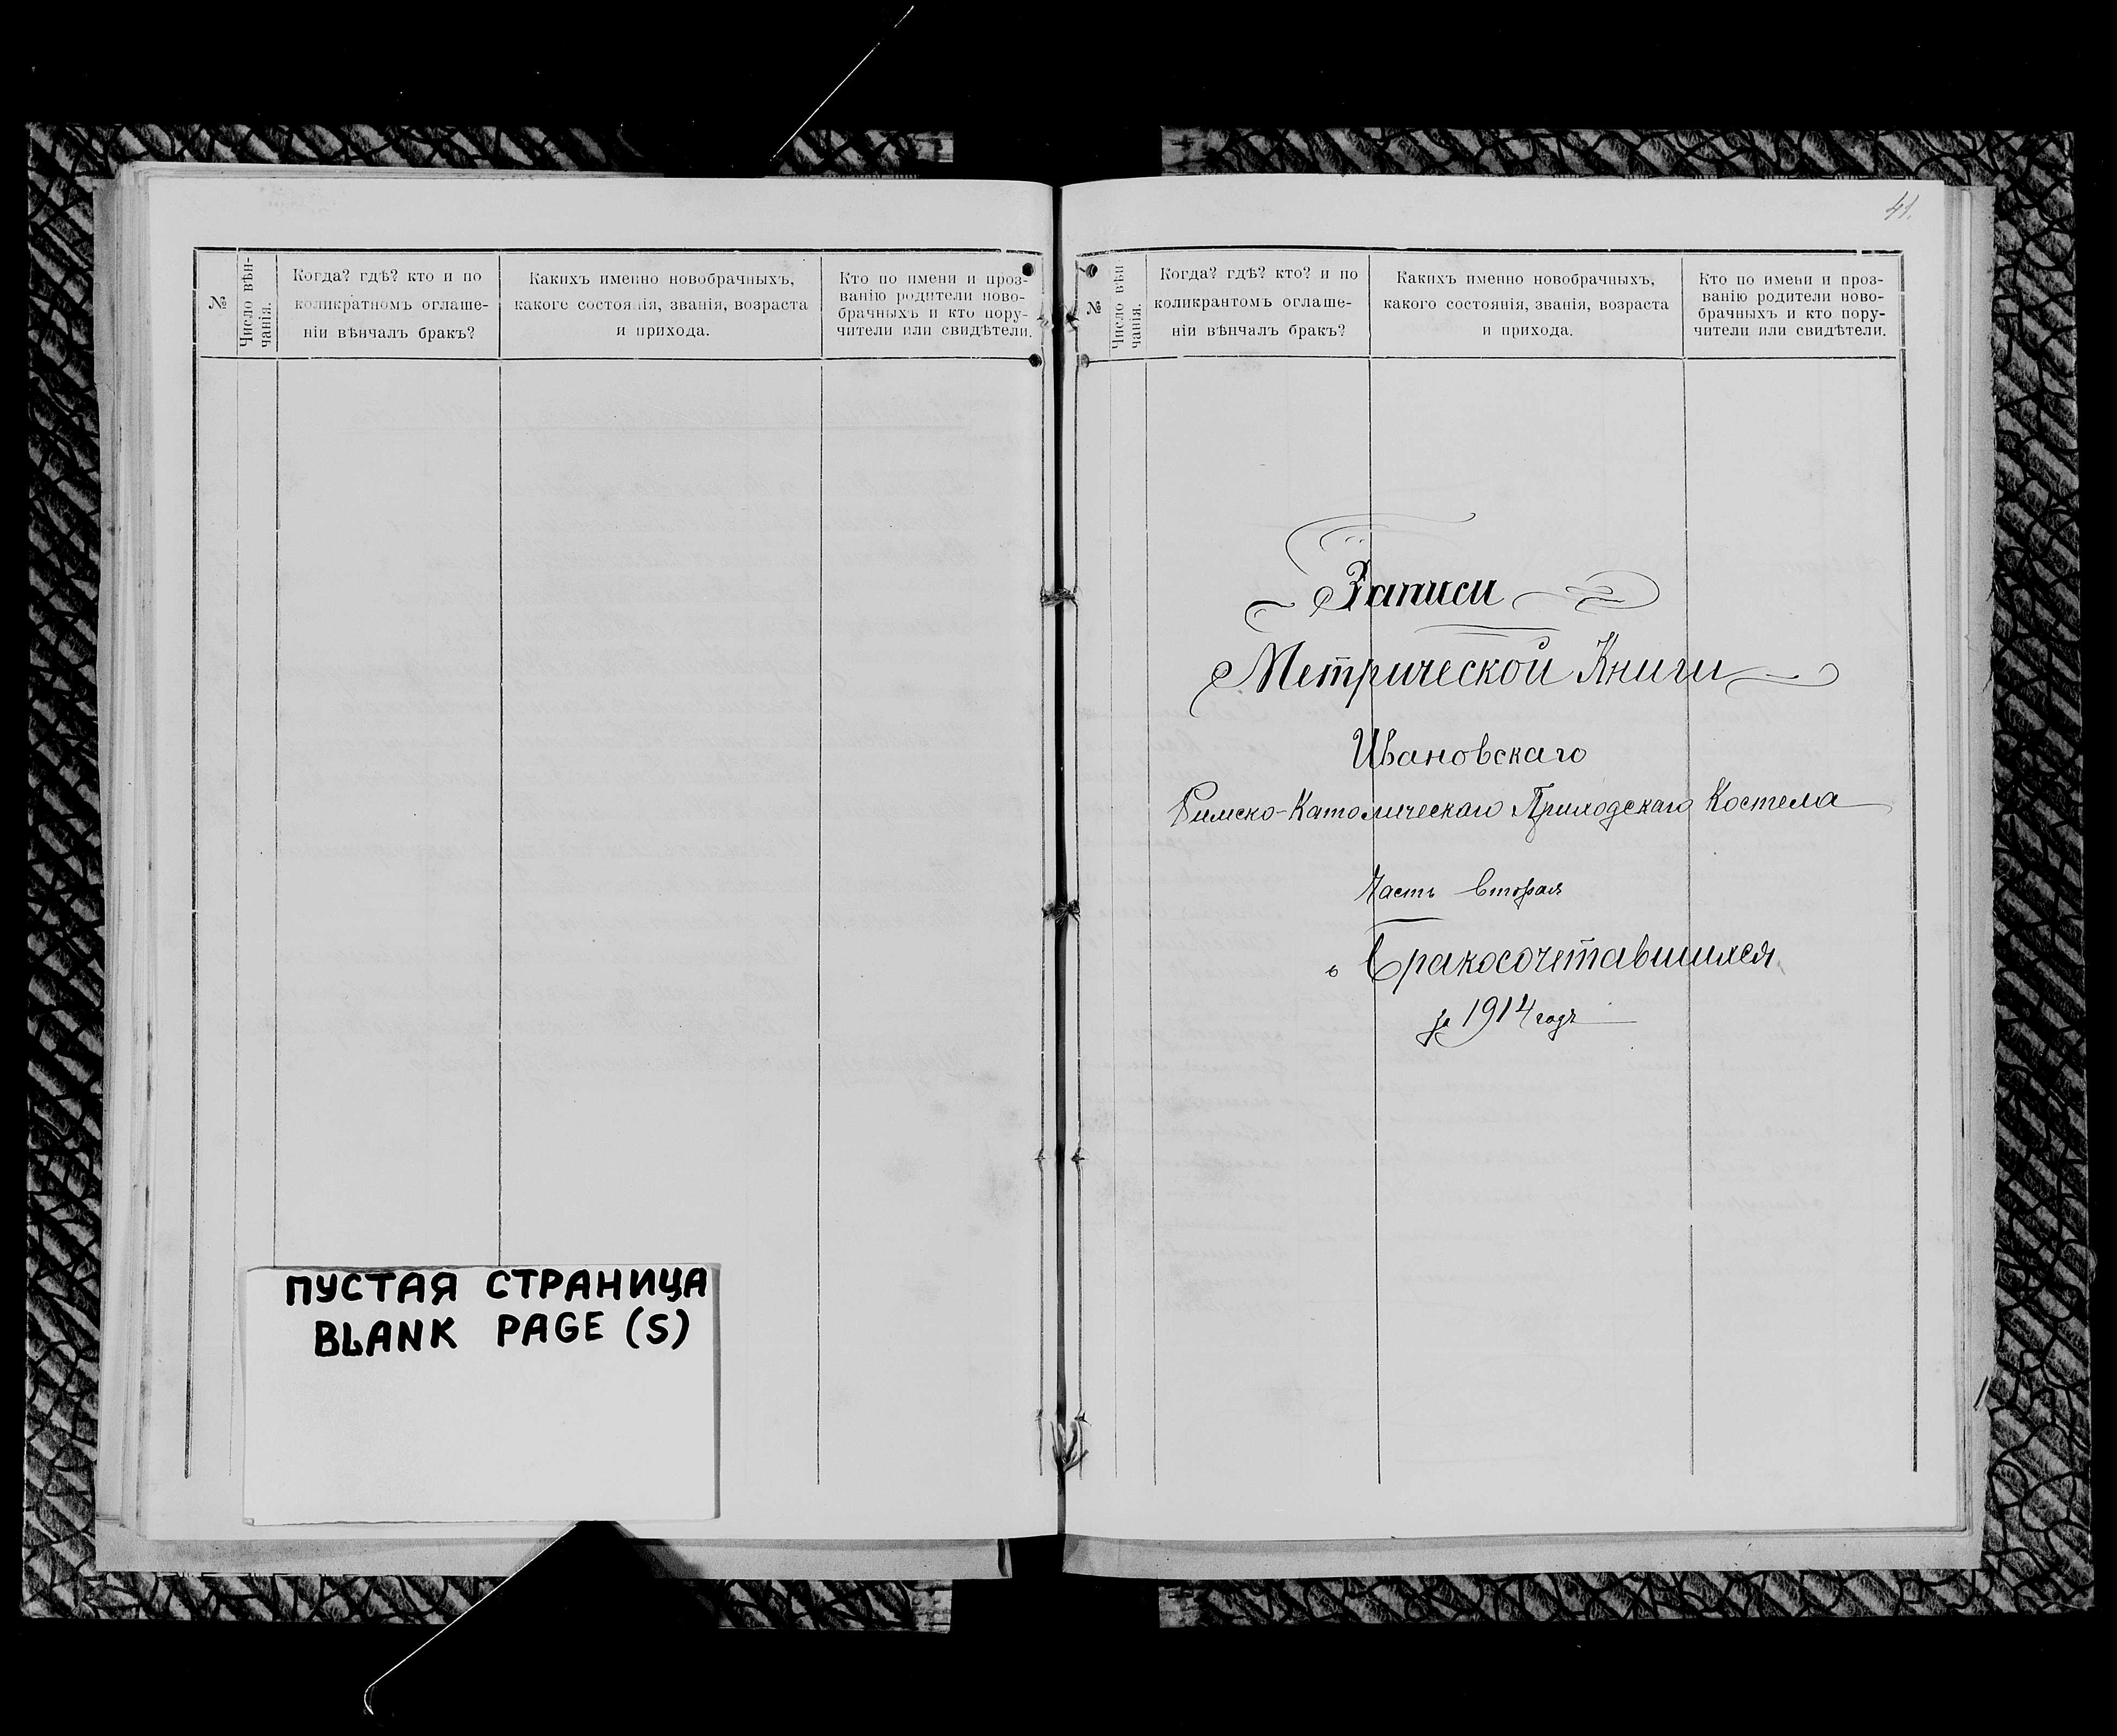 №
Число вѣн-
чанія.
Когда? гдѣ? кто и по
коликратномъ оглаше-
ніи вѣнчалъ бракъ?
Какихъ именно новобрачныхъ,
какого состоянія, званія, возраста
и прихода.
Кто по имени и проз-
ванію родители ново-
брачныхъ и кто пору-
чители или свидѣтели.
ПУСТАЯ СТРАНИЦА
BLANK PAGE (S)
41.
№
Число вѣн
чанія.
Когда? гдѣ? кто? и по
коликрантомъ оглаше-
ніи вѣнчалъ бракъ?
Какихъ именно новобрачныхъ,
какого состоянія, званія, возраста
и прихода.
Кто по имени и проз-
ванію родители ново-
брачныхъ и кто пору-
чители или свидѣтели.
Записи
Метрической Книги
Ивановскаго
Римско-Католическаго Приходскаго Костела
Часть вторая
о Бракосочетавшихся
за 1914 годъ